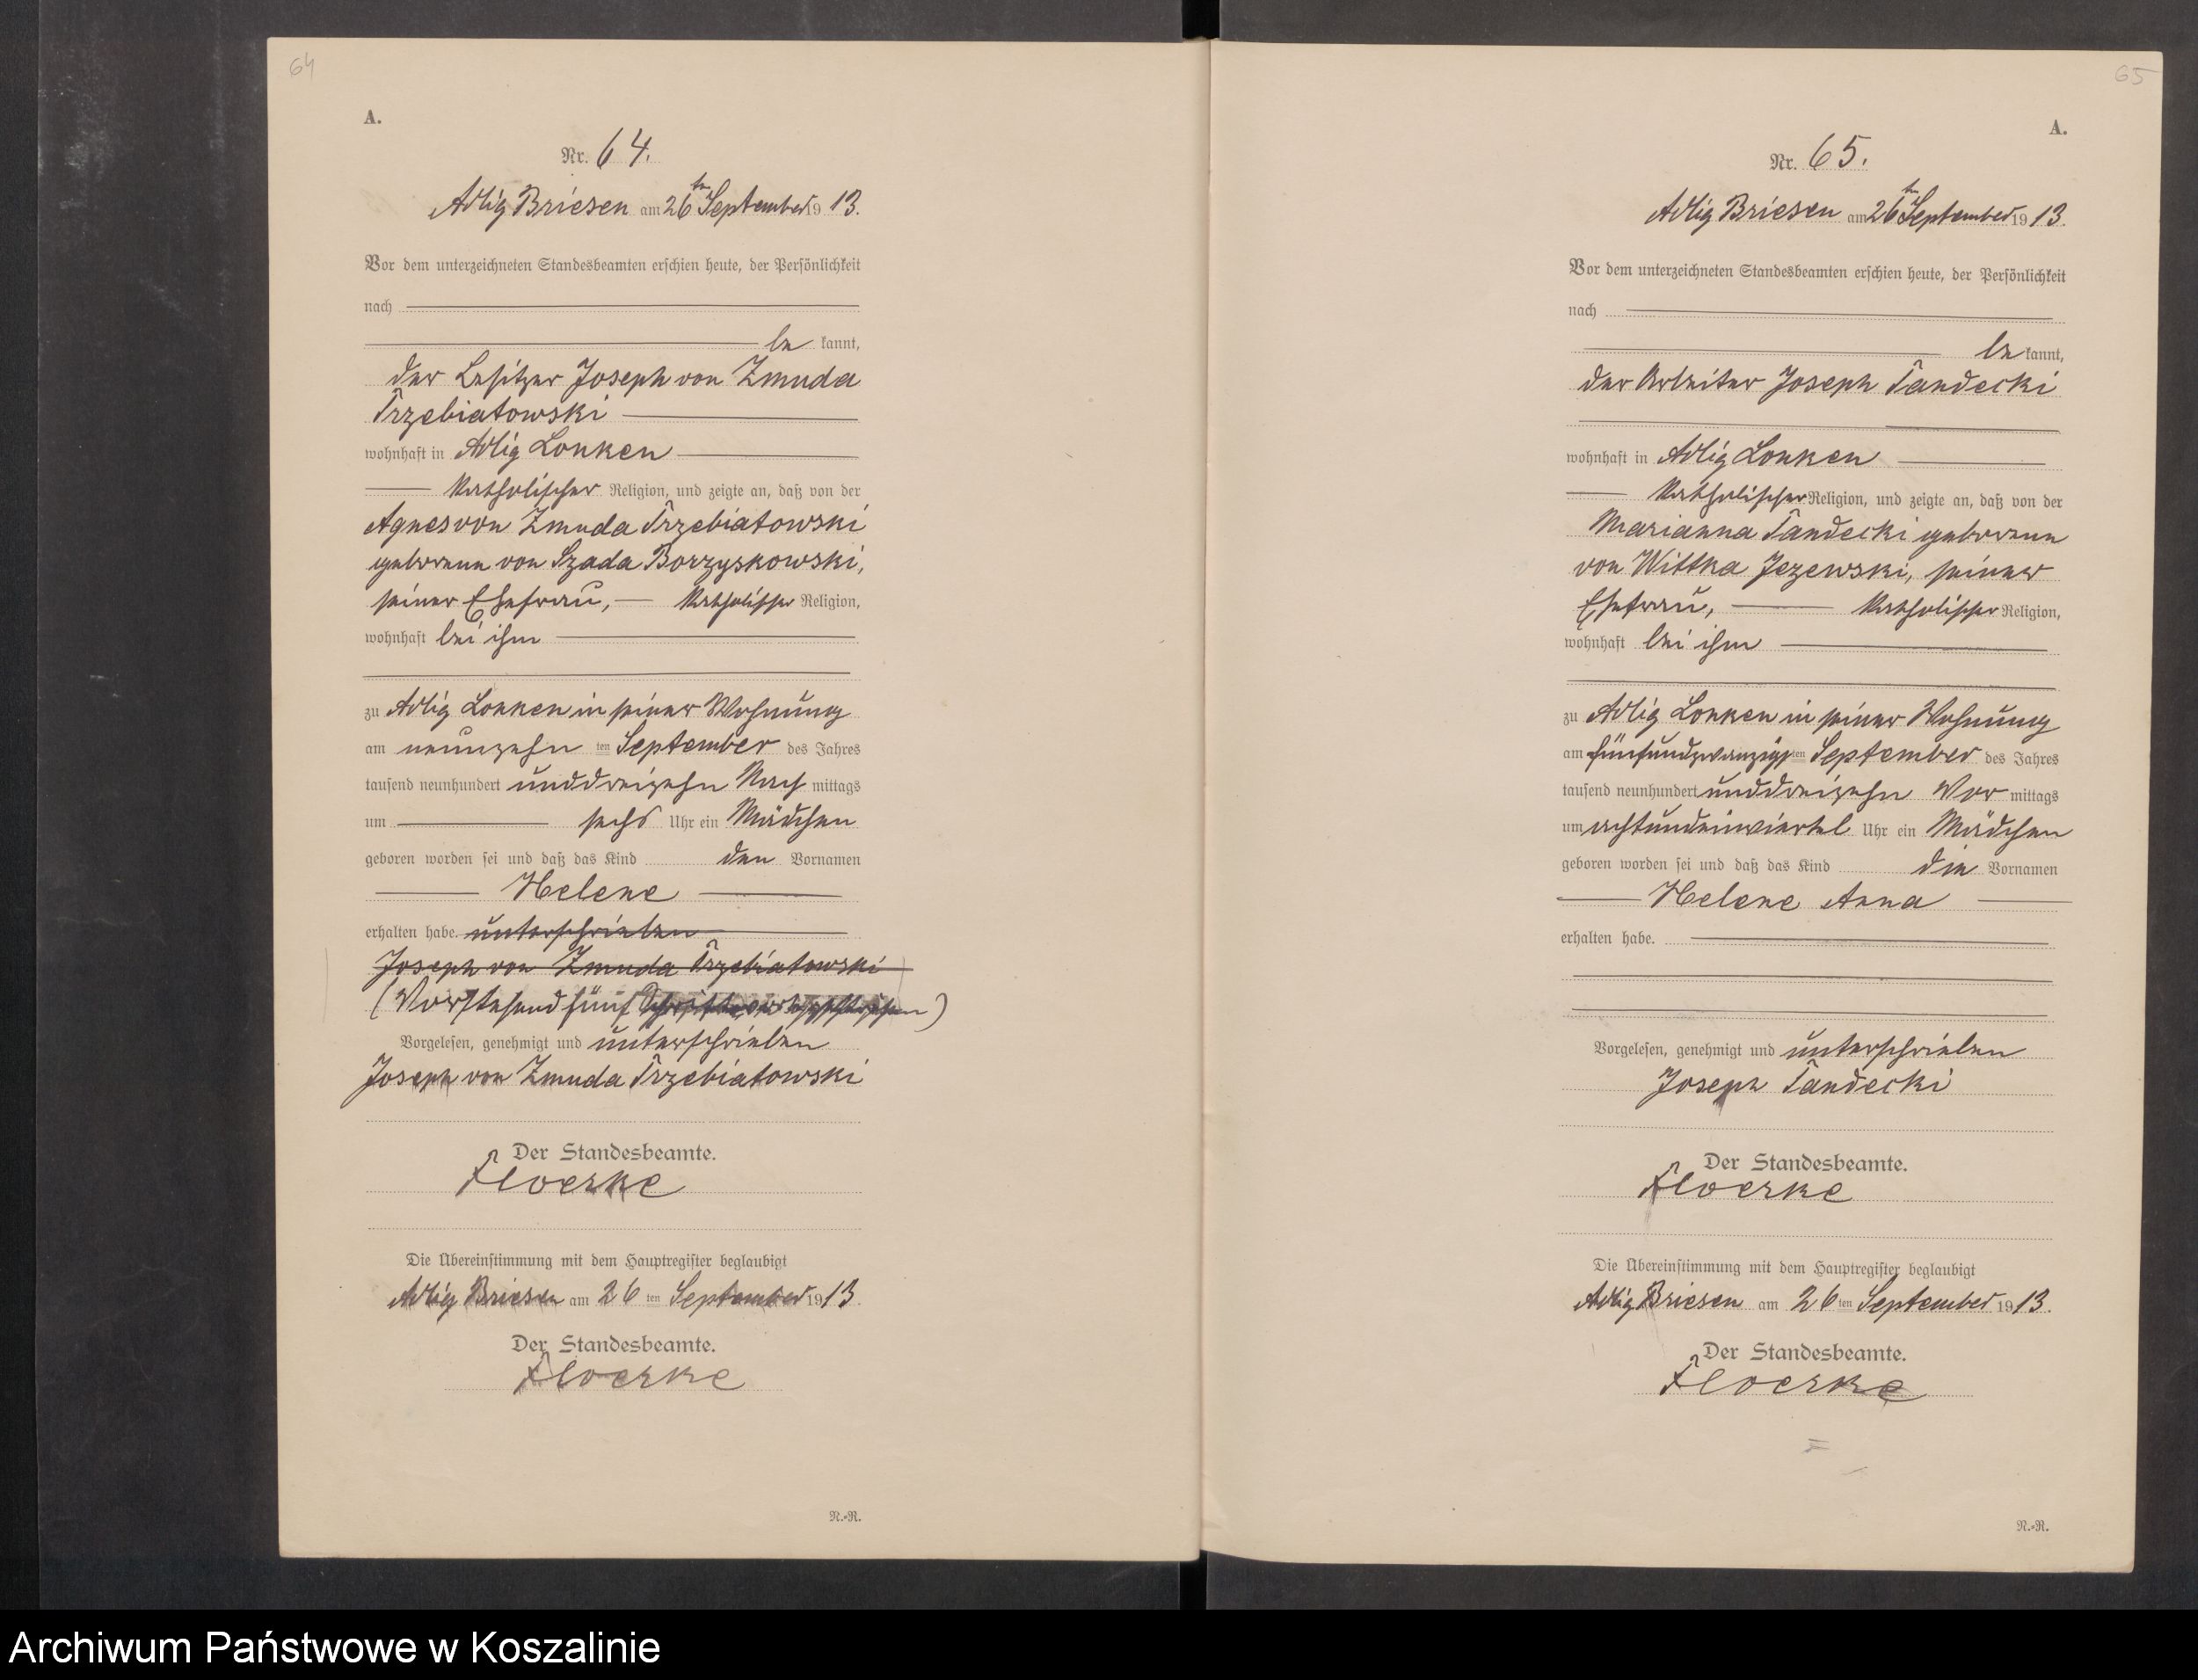 64
A.
Nr. 64.
Adlig Briesen am 26ten September 1913.
Vor dem unterzeichneten Standesbeamten erschien heute, der Persönlichkeit
nach
be kannt,
der Besitzer Joseph von Zmuda
Trzebiatowski
wohnhaft in Adlig Lonken
katholischer Religion, und zeigte an, daß von der
Agnes von Zmuda Trzebiatowski
geborene von Szada Borzyskowski,
seiner Ehefrau, katholischer Religion,
wohnhaft bei ihm
zu Adlig Lonken in seiner Wohnung
am neunzehn ten September des Jahres
tausend neunhundert unddreizehn Nach mittags
um sechs Uhr ein Mädchen
geboren worden sei und daß das Kind den Vornamen
Helene
erhalten habe. unterschrieben
Joseph von Zmuda Trzebiatowski
(Vorstehend fünf )
Vorgelesen, genehmigt und unterschrieben
Joseph von Zmuda Trzebiatowski
Der Standesbeamte.
Floerke
Die Übereinstimmung mit dem Hauptregister beglaubigt
Adlig Briesen am 26 ten September 1913.
Der Standesbeamte.
Floerke
N.-R.
65
A.
Nr. 65.
Adlig Briesen am 26ten September 1913.
Vor dem unterzeichneten Standesbeamten erschien heute, der Persönlichkeit
nach
be kannt,
der Arbeiter Joseph Tandecki
wohnhaft in Adlig Lonken
katholischer Religion, und zeigte an, daß von der
Marianna Tandecki geborene
von Wittka Jezewski, seiner
Ehefrau, katholischer Religion,
wohnhaft bei ihm
zu Adlig Lonken in seiner Wohnung
am fünfundzwanzigsten September des Jahres
tausend neunhundert unddreizehn Vor mittags
um achtundeinviertel Uhr ein Mädchen
geboren worden sei und daß das Kind die Vornamen
Helene Anna
erhalten habe.
Vorgelesen, genehmigt und unterschrieben
Joseph Tandecki
Der Standesbeamte.
Floerke
Die Übereinstimmung mit dem Hauptregister beglaubigt
Adlig Briesen am 26 ten September 1913.
Der Standesbeamte.
Floerke
N.-R.
Archiwum Państwowe w Koszalinie